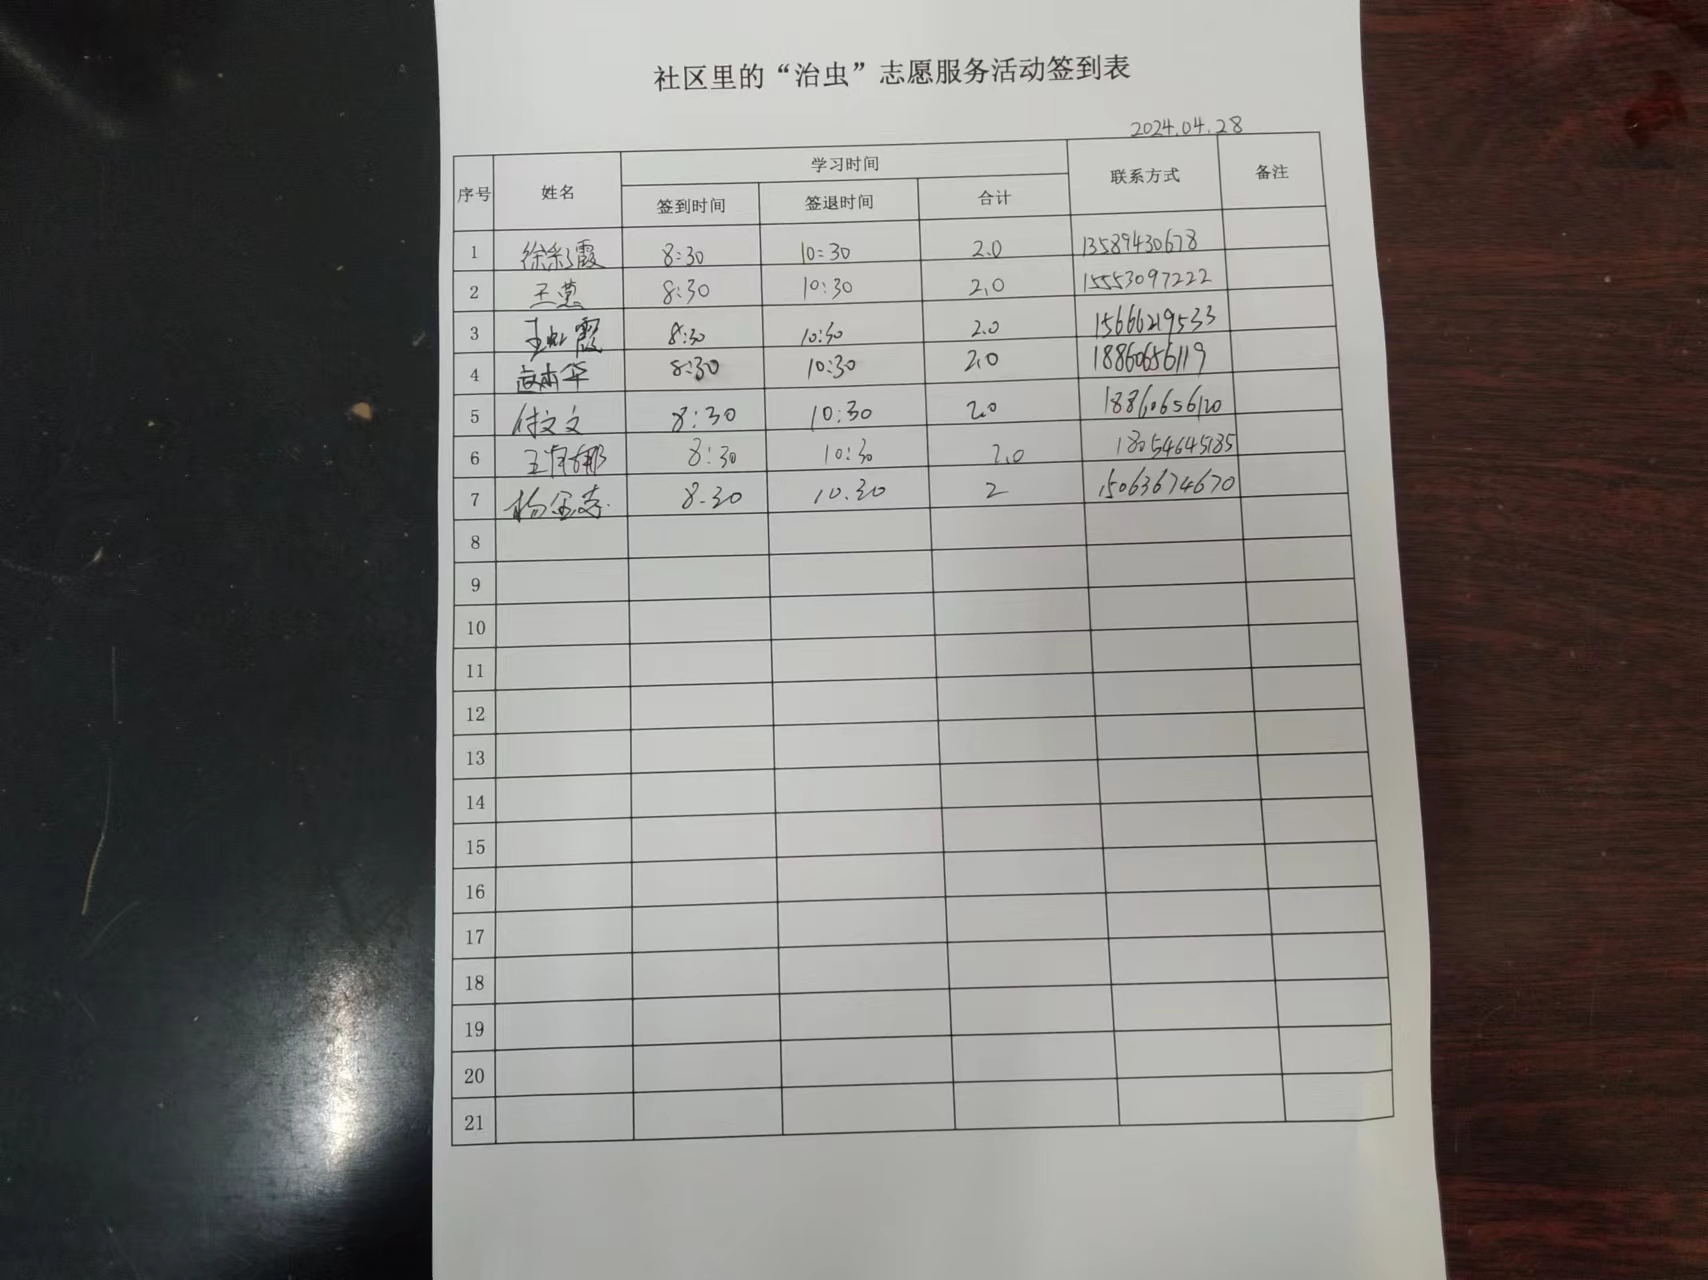 社区里的“治虫”志愿服务活动签到表
2024.04.28
序号 姓名 学习时间 联系方式 备注
签到时间 签退时间 合计
1 徐彩霞 8:30 10:30 2.0 13589430678
2 王慧 8:30 10:30 2.0 15553097222
3 王虹霞 8:30 10:30 2.0 15666219533
4 8:30 10:30 2.0 18860656119
5 付文文 8:30 10:30 2.0 18860656120
6 8:30 10:30 2.0 18054645185
7 8.30 10.30 2 15063674670
8
9
10
11
12
13
14
15
16
17
18
19
20
21